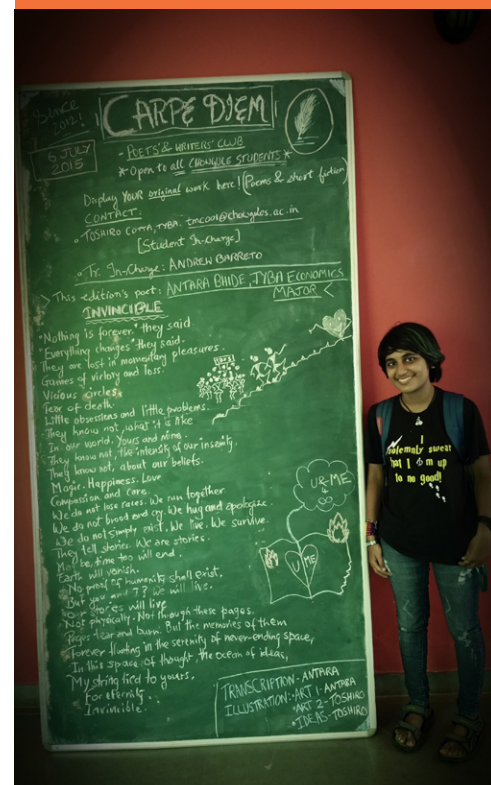 Since 2012!
CARPE DIEM
6 JULY 2015
- POETS' & WRITERS' CLUB
* Open to all CHOWGULE STUDENTS *
Display YOUR original work here! (Poems & short fiction)
CONTACT:
TOSHIRO COTTA, TYBA: tmc001@chowgules.ac.in
[Student In-Charge]
Tr. In-Charge: ANDREW BARRETO
> This edition's poet: ANTARA BHIDE, TYBA ECONOMICS MAJOR <
INVINCIBLE
"Nothing is forever" they said.
"Everything changes" they said.
They are lost in momentary pleasures.
Games of victory and loss.
Vicious circles.
Fear of death.
Little obsessions and little problems.
They know not, what it is like
In our world. Yours and mine.
They know not, the intensity of our insanity.
They know not, about our beliefs.
Magic. Happiness. Love
Compassion and care.
We do not lose rates. We run together
We do not brood and cry. We hug and apologize.
We do not simply exist. We live. We survive.
They tell stories. We are stories.
May be, time too will end.
Earth will vanish.
No proof of humanity shall exist.
But you and I? We will live.
Our stories will live
Not physically. Not through these pages.
Pages tear and burn. But the memories of them
Forever floating in the serenity of never-ending space,
In this space of thought, the ocean of ideas,
My string tied to yours.
For eternity...
Invincible.
U & ME
U ME
TRANSCRIPTION - ANTARA
ILLUSTRATION: ART 1 - ANTARA
ART 2 - TOSHIRO
IDEAS - TOSHIRO
I
solemnly swear
that I am up
to no good!